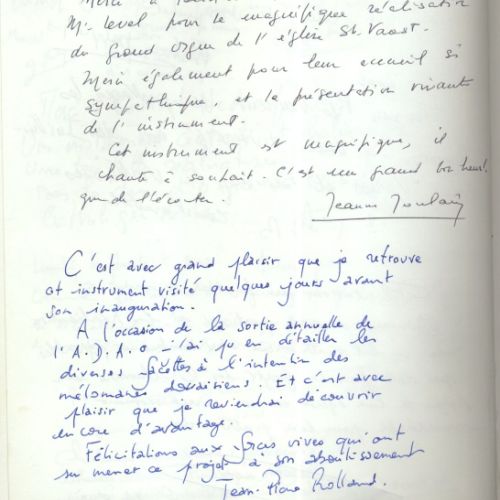 Merci à
Mr. Level pour la magnifique réalisation
du grand orgue de l'église St. Vaast.
Merci également pour leur accueil si
sympathique, et la présentation vivante
de l'instrument.
Cet instrument est magnifique, il
chante à souhait. C'est un grand bonheur
que de l'écouter.
Jeanne Joulain
C'est avec grand plaisir que je retrouve
cet instrument visité quelques jours avant
son inauguration.
A l'occasion de la sortie annuelle de
l'A.D.A.O - j'ai pu en détailler les
diverses facettes à l'intention des
mélomanes douaisiens. Et c'est avec
plaisir que je reviendrai découvrir
encore d'avantage.
Félicitations aux forces vives qui ont
su mener ce projet à son aboutissement
Jean-Pierre Rolland.